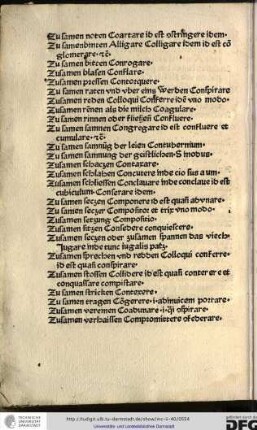 Zu samen noten Coartare id est ostringere idem.
Zu samenbinten Alligare Colligare idem id est cō
glomerare ⁊c̄.
Zu samen bitten Conrogare.
Zu samen blasen Conflare.
Zu samen pressen Contorquere.
Zu samen raten vnd vber einz Werben Conspirare
Zu samen reden Colloqui Conferre idē vno modo.
Zu samen rēnen als die milch Coagulare.
Zu samen rinnen oder fließen Confluere.
Zu samen samnen Congregare id est confluere et
cumulare ⁊c̄.
Zu samen samnūg der leien Contubernium.
Zu samen samnung der geistlichen Sinodus.
Zu samen schaczen Contaxare.
Zu samen schlahen Concutere
Zu samen schliessen Conclauare inde conclaue id est
cubiculum. Conserare idem.
Zu samen seczen Componere id est quasi adunare.
Zu samen seczer Compositor et trix vno modo.
Zu samen seczung Compositio.
Zu samen siczen Consedere conquiescere.
Zu samen seczen oder zusamen spannen das viech.
Iugare inde iugalis
Zu samen sprechen vnd redden Colloqui conferre.
id est quasi conspirare.
Zu samen stossen Collidere id est quasi conterere et
conquassare
Zu samen stricken Contexere.
Zu samen tragen Cōgerere. i. abinuicem portare.
Zu samen vereinen Coadunare
Zu samen verhaissen Compromittere
TECHNISCHE UNIVERSITÄT DARMSTADT
Universitäts- und Landesbibliothek Darmstadt
DFG